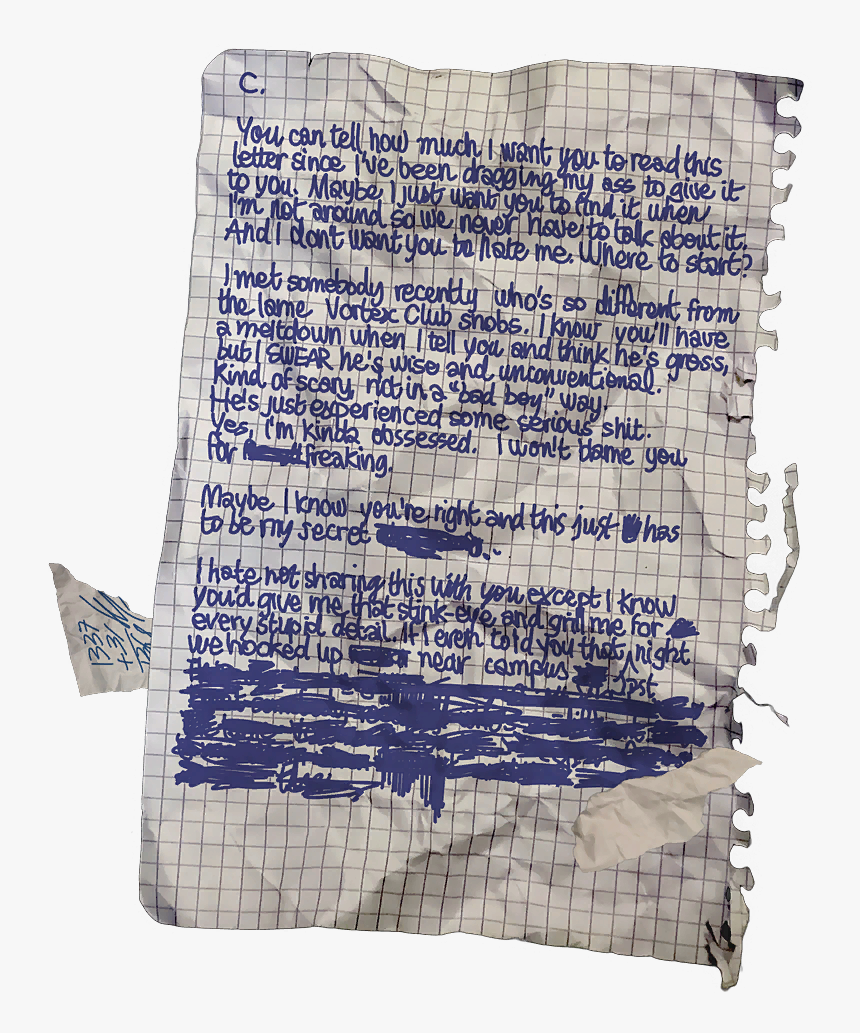 C.
You can tell how much I want you to read this
letter since I've been dragging my ass to give it
to you. Maybe I just want you to find it when
I'm not around so we never have to talk about it.
And I don't want you to hate me. Where to start?
I met somebody recently who's so different from
the lame Vortex Club snobs. I know you'll have
a meltdown when I tell you and think he's gross,
but I SWEAR he's wise and unconventional.
Kind of scary, not in a "bad boy" way.
He's just experienced some serious shit.
Yes, I'm kinda obssessed. I won't blame you
for freaking.
Maybe I know you're right and this just has
to be my secret
I hate not sharing this with you except I know
you'd give me that stink-eye and grill me for
every stupid detail. If I even told you that night
we hooked up near campus just
1337
+31